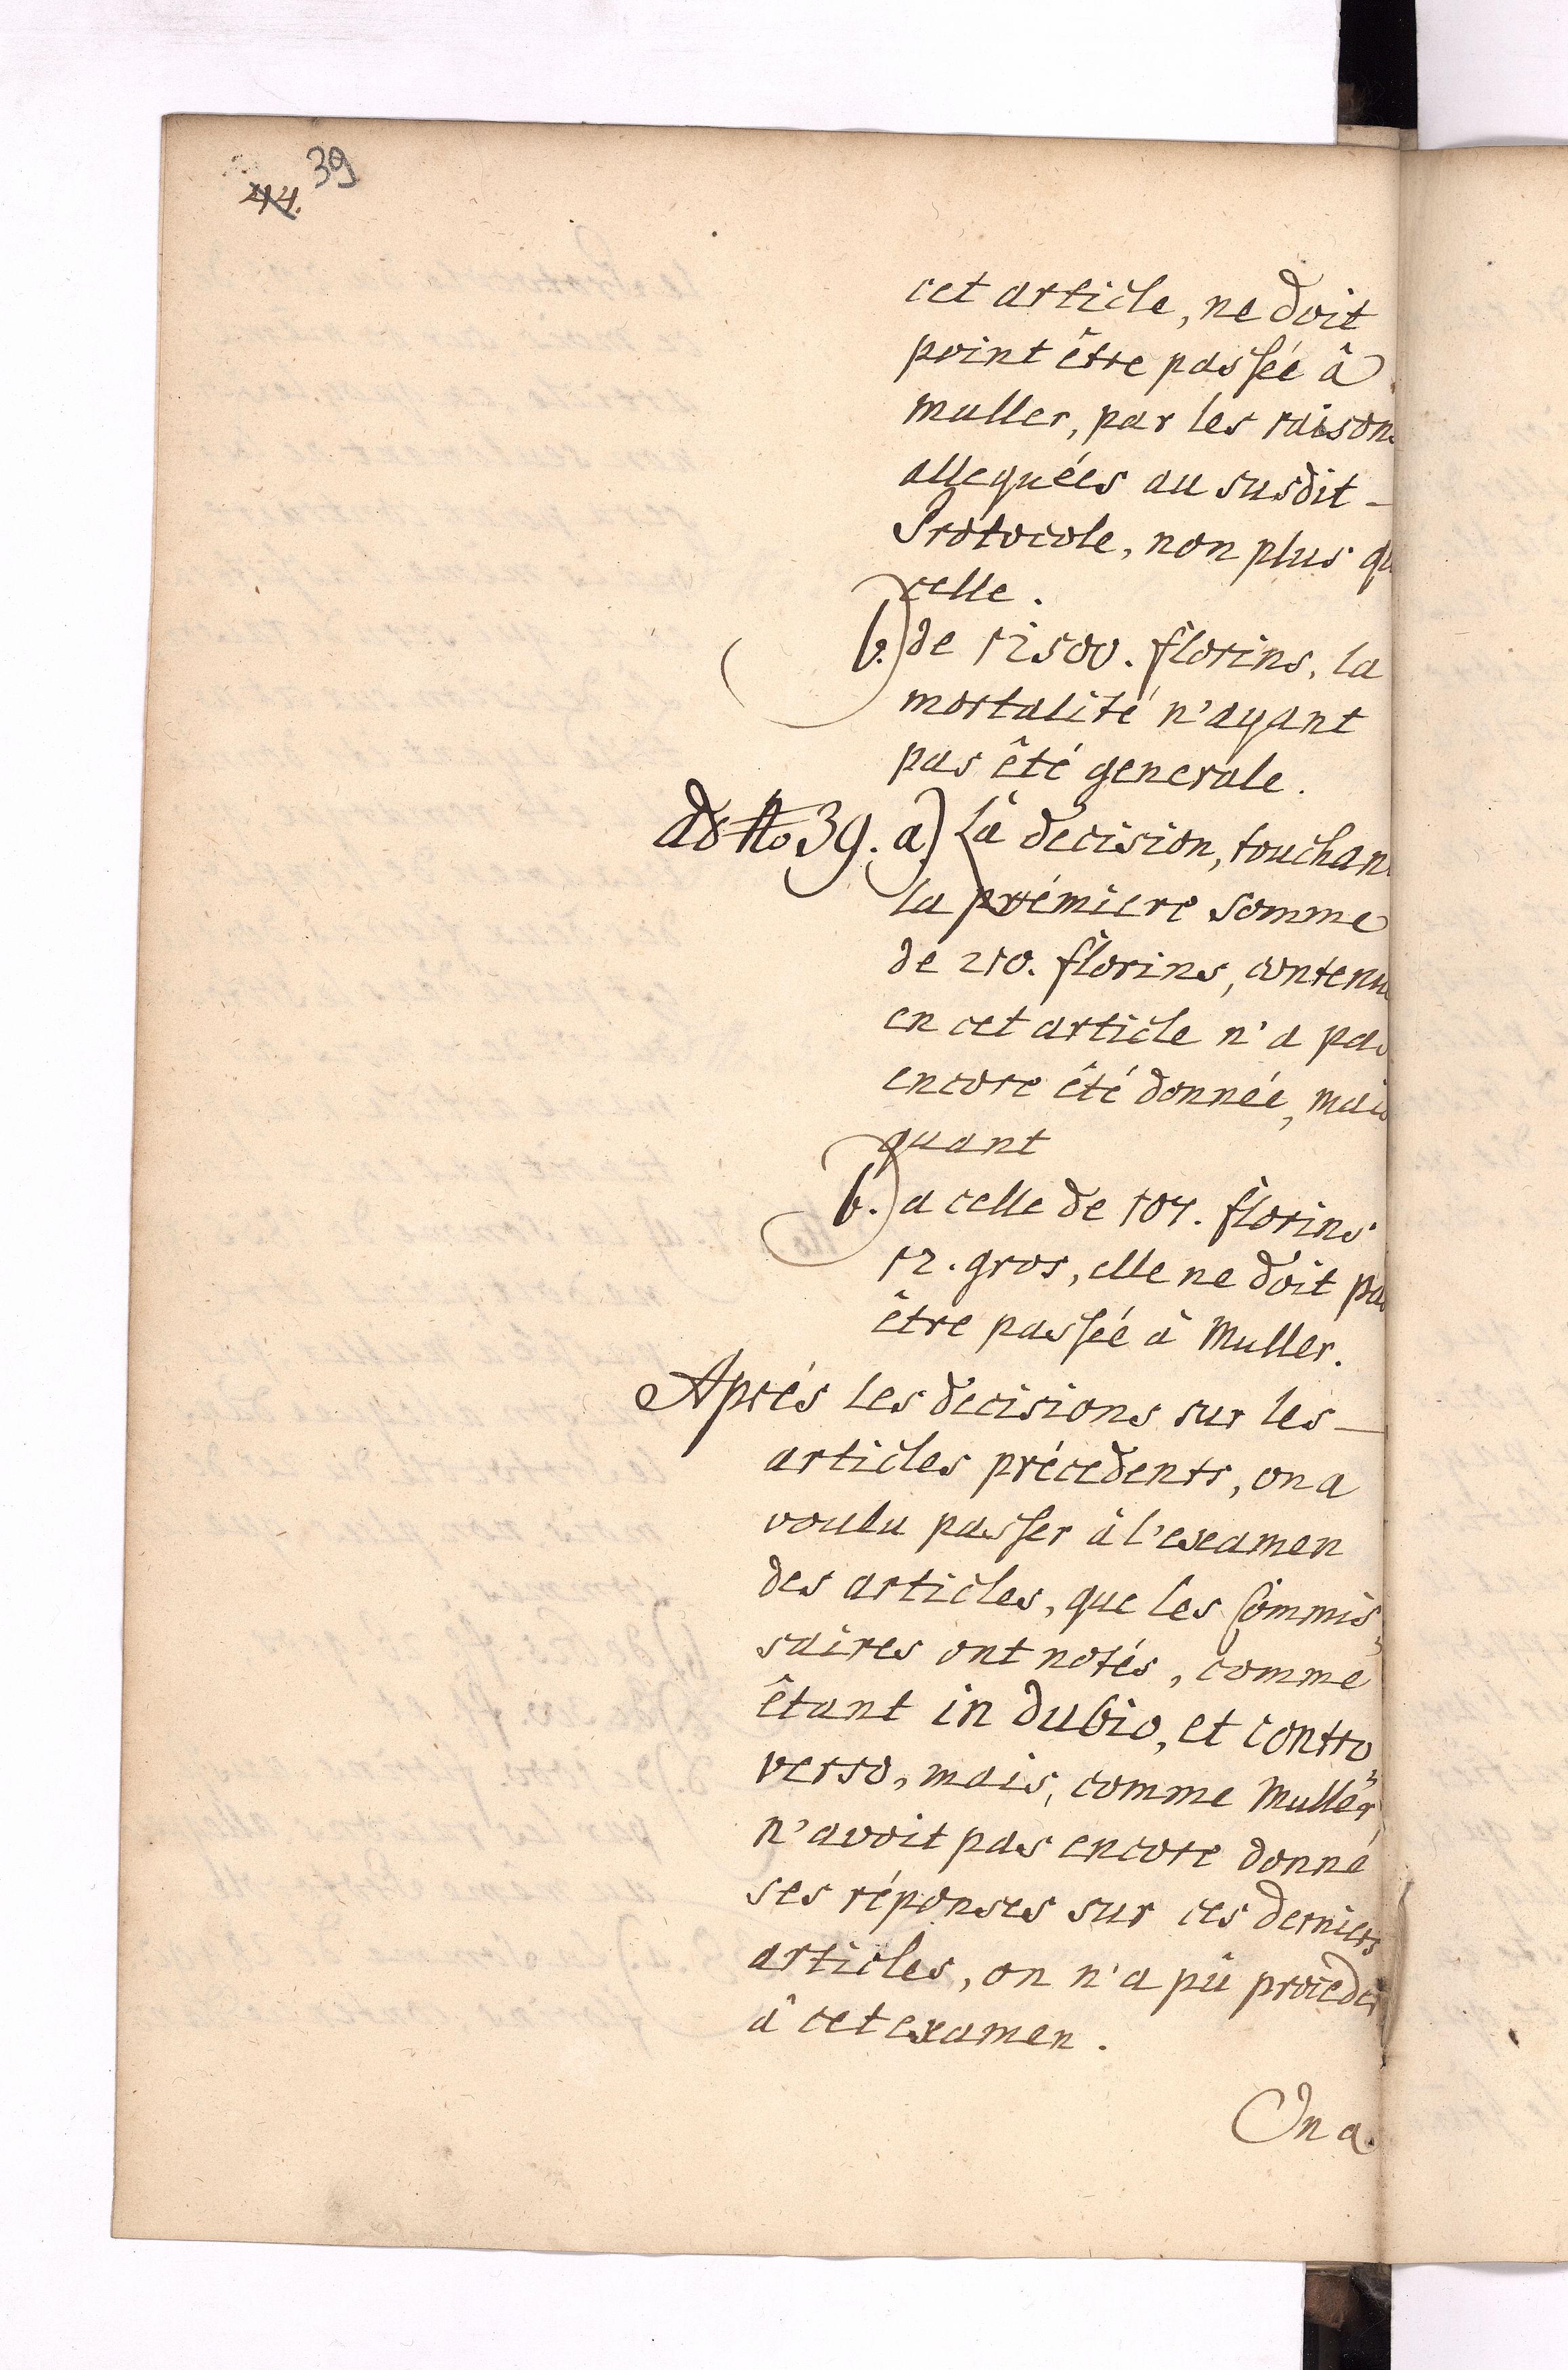 39
44.
cet article, ne doit
point être passée â
muller, par les raisons
allequées au susdit -
Protocole, non plus qu
celle.
b.) de 12500. florins, la
mortalité n'ayant
pas êté generale.
ad No 39. a) La decision, touchant
la prémiere somme
de 210. florins, contenue
en cet article n'a pas
encore êté donnée, mais
quant
b.) a celle de 107. florins
12. gros, elle ne doit pas
être passée à Muller.
Aprés les decisions sur les -
articles précedents, on a
voulu passer â l'examen
des articles, que les Commis,
saires ont notés, comme
êtant in dubio, et contro,
verso, mais, comme Muller
n'avoit pas encore donné
ses réponses sur ces derniers
articles, on n'a pû proceder
â cet examen.
On a.